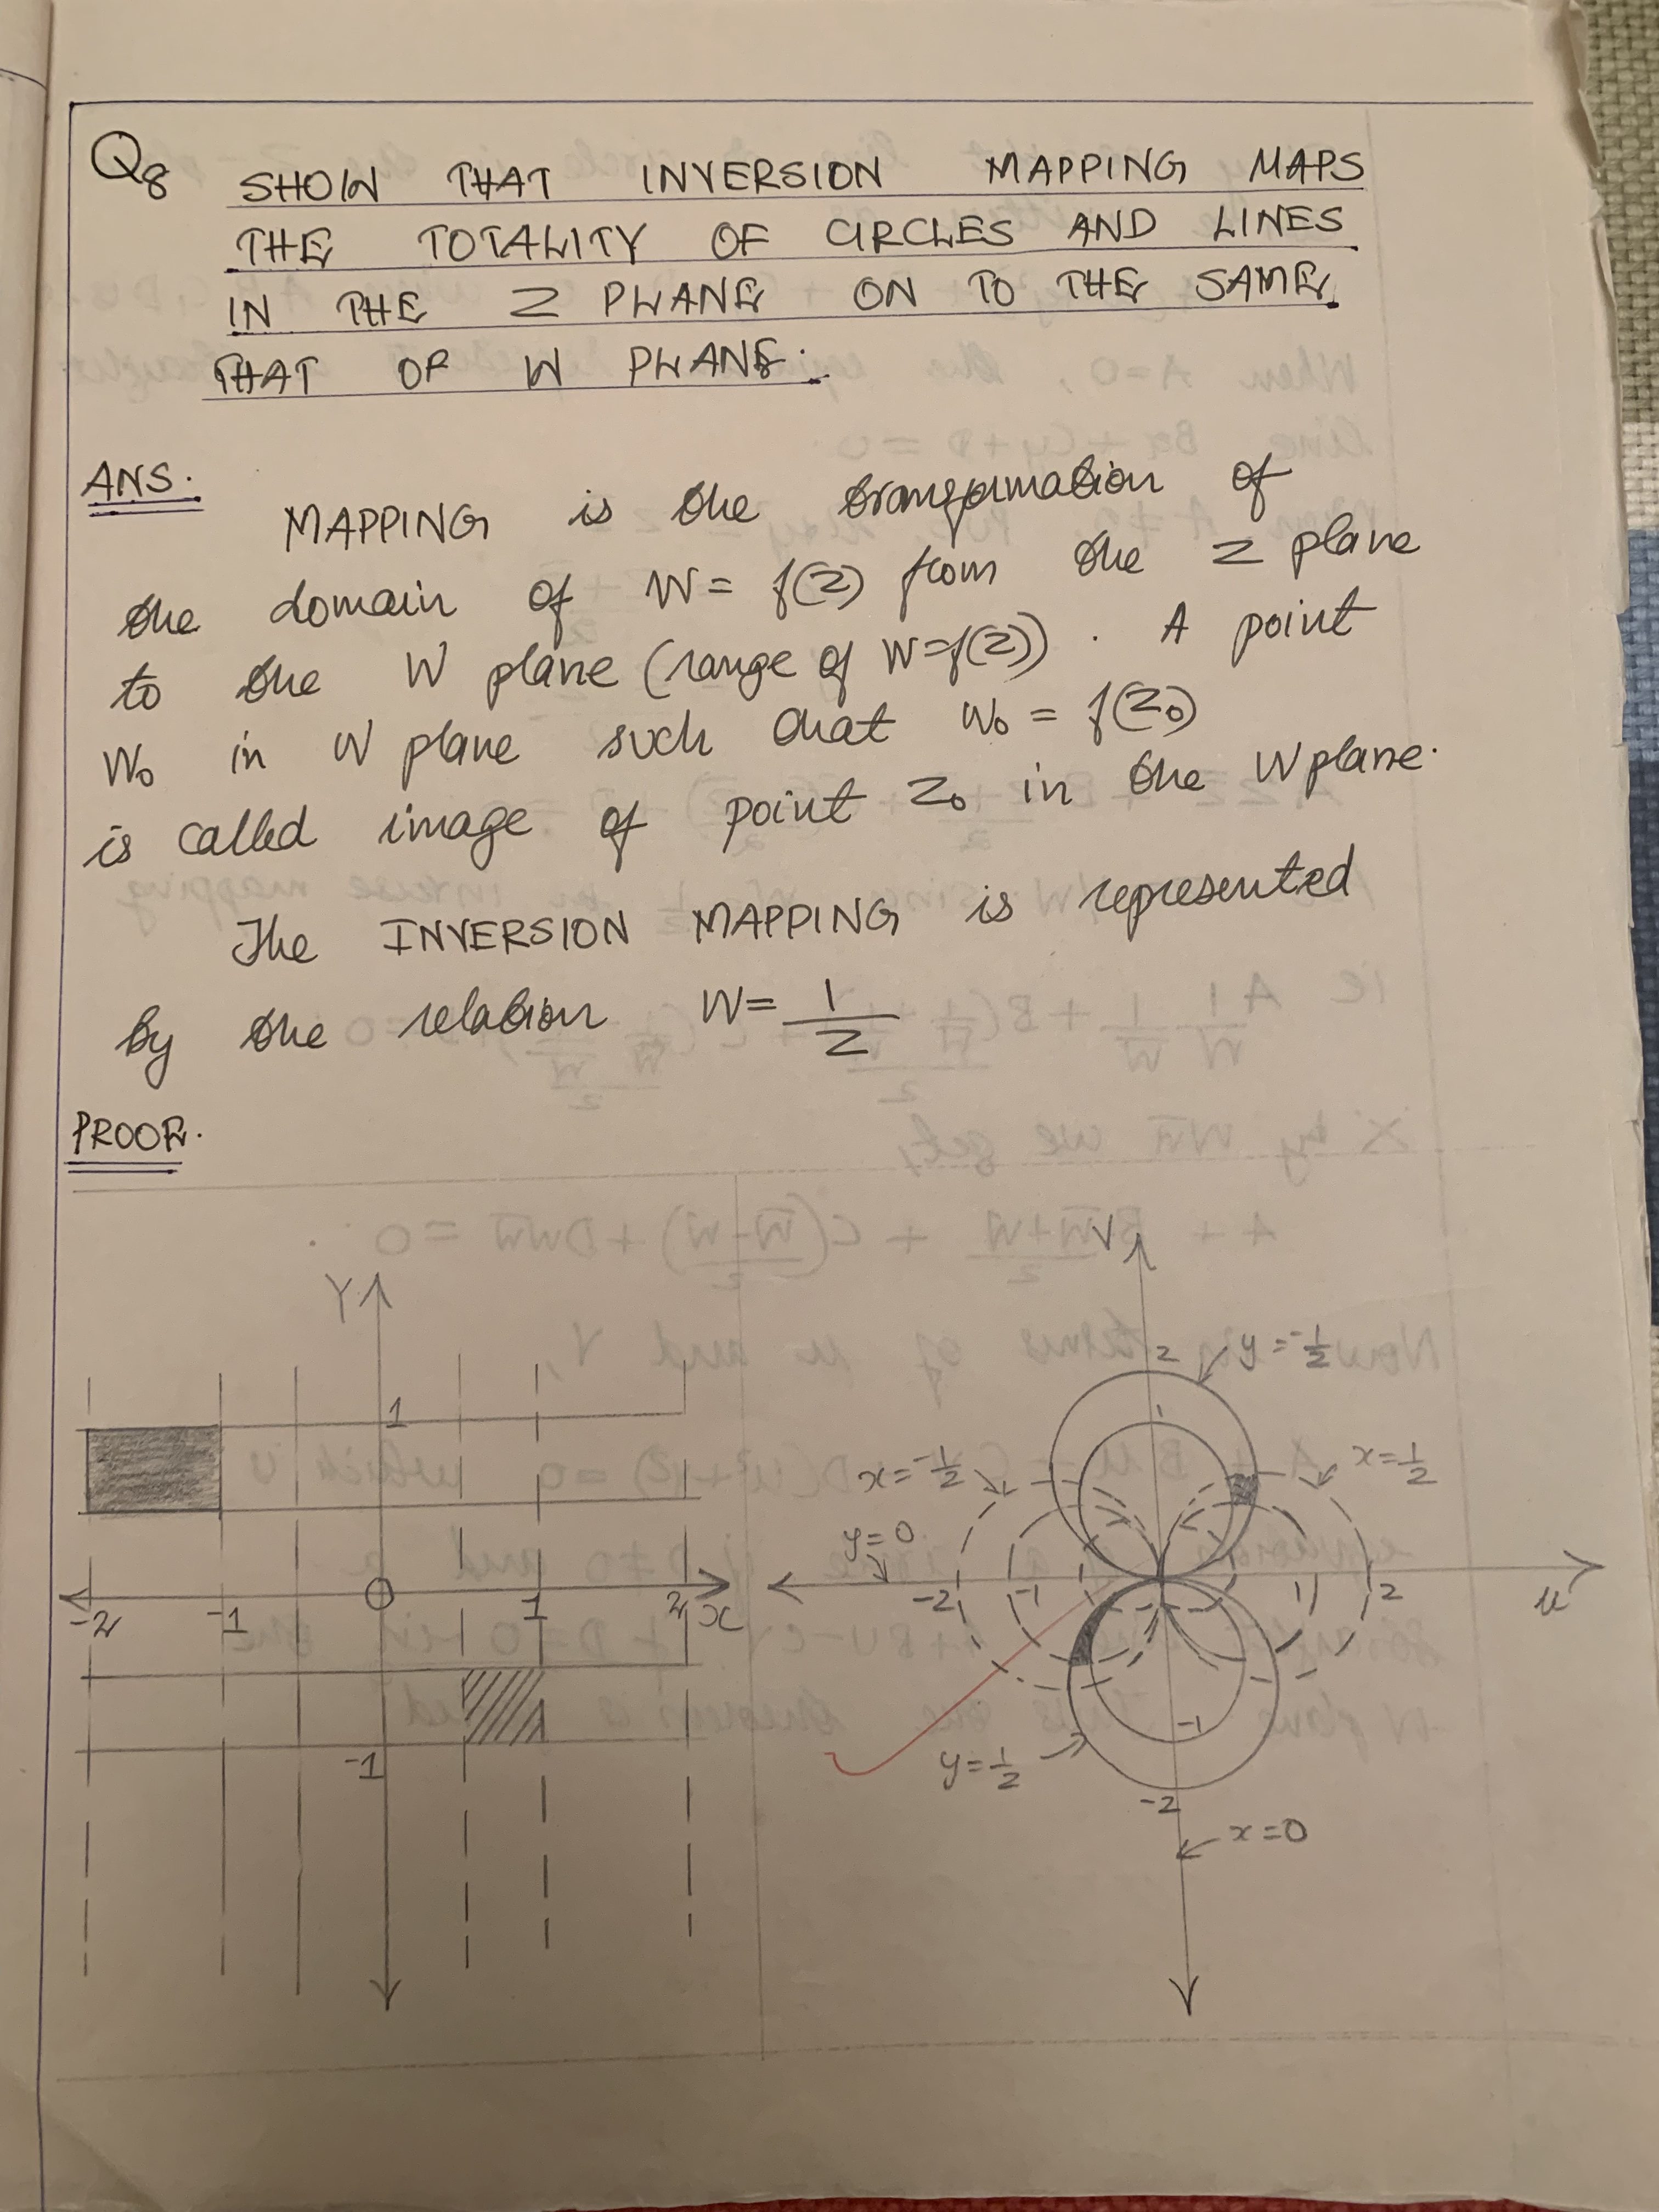 Q8 SHOW THAT INVERSION MAPPING MAPS
THE TOTALITY OF CIRCLES AND LINES
IN THE Z PLANE ON TO THE SAME
THAT OF W PLANE.
ANS.
MAPPING is the transformation of
the domain of W = f(Z) from the Z plane
to the W plane (range of W=f(Z)). A point
W₀ in W plane such that W₀ = f(Z₀)
is called image of point Z₀ in the W plane.
The INVERSION MAPPING is represented
by the relation W = 1/Z
PROOF.
Y
1
-2 -1 O 1 2 x
-1
V
2
y = -1/2
1
x = -1/2
x = 1/2
y = 0
-2 -1 1 2 u
-1
y = 1/2
-2
x = 0